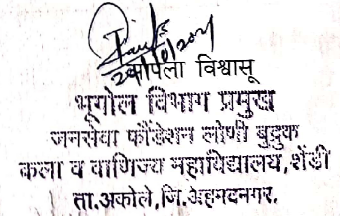 आपला विश्वासू
भूगोल विभाग प्रमुख
जनसेवा फौंडेशन लोणी बुद्रुक
कला व वाणिज्य महाविद्यालय,शेंडी
ता.अकोले,जि.अहमदनगर.